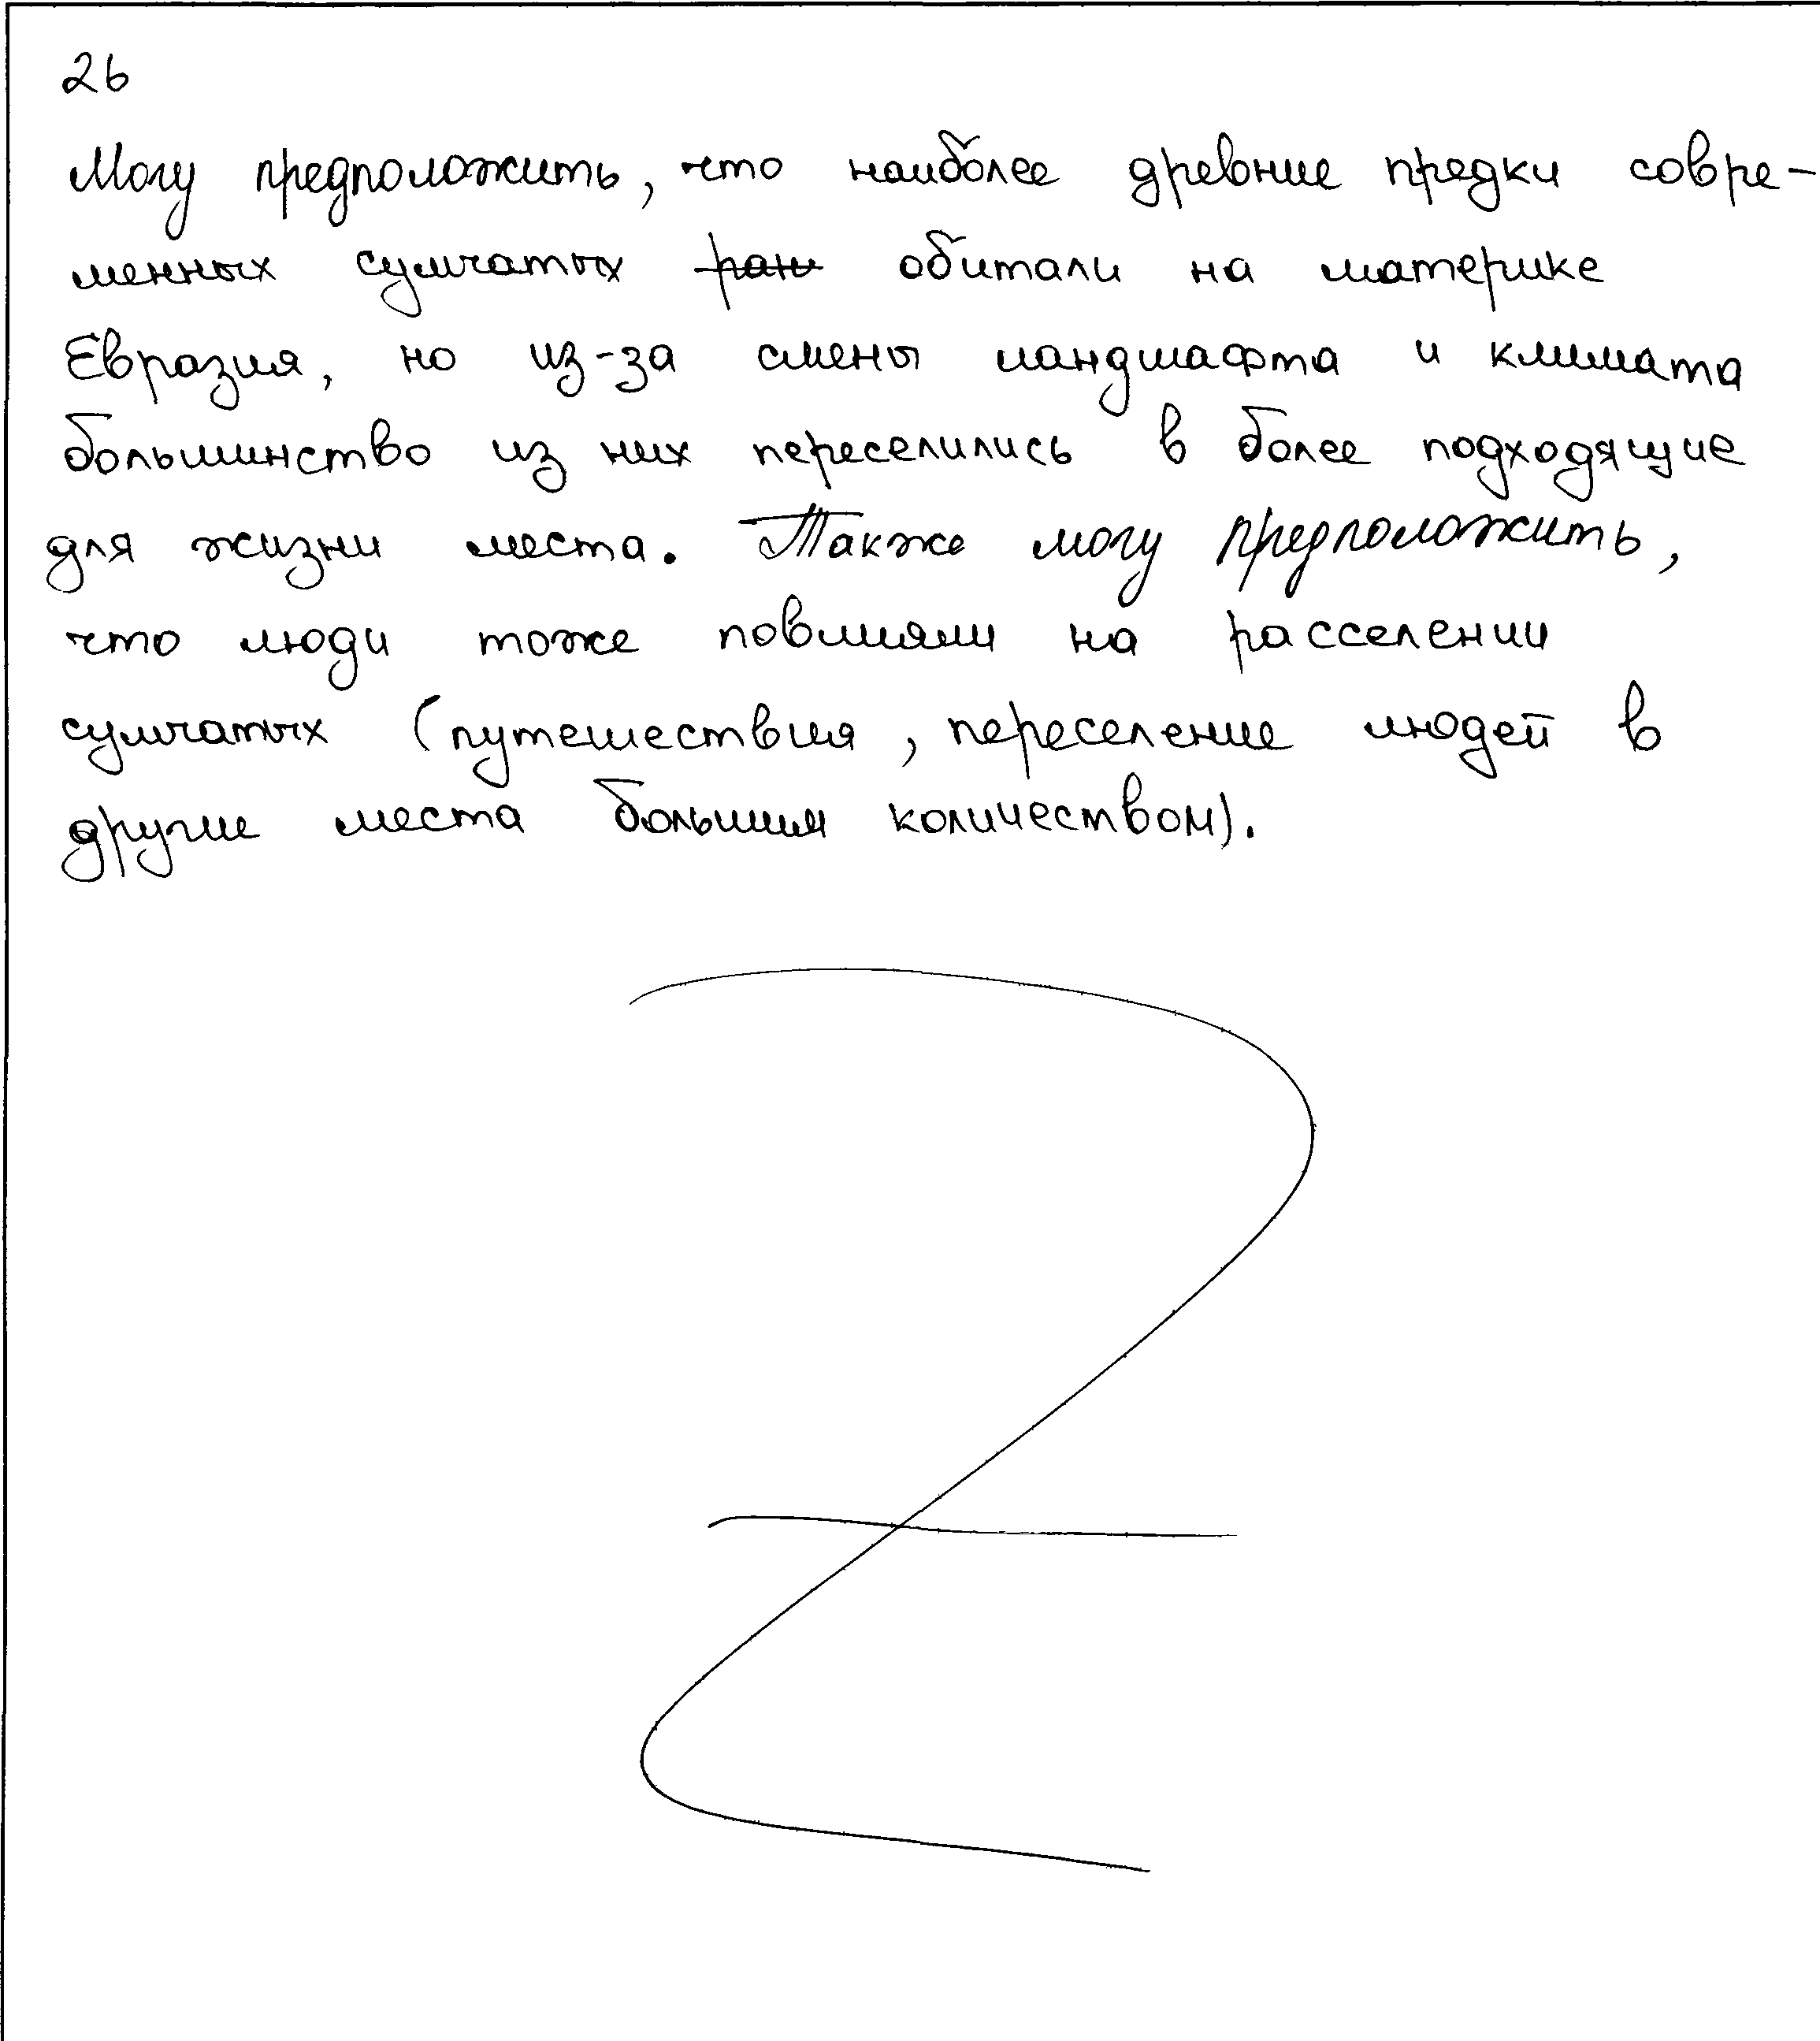 26
Могу предположить, что наиболее древние предки совре-
менных сумчатых ран обитали на материке
Евразия, но из-за смены ландшафта и климата
большинство из них переселились в более подходящие
для жизни места. Также могу предположить,
что люди тоже повлияли на расселении
сумчатых (путешествия, переселение людей в
другие места большим количеством).